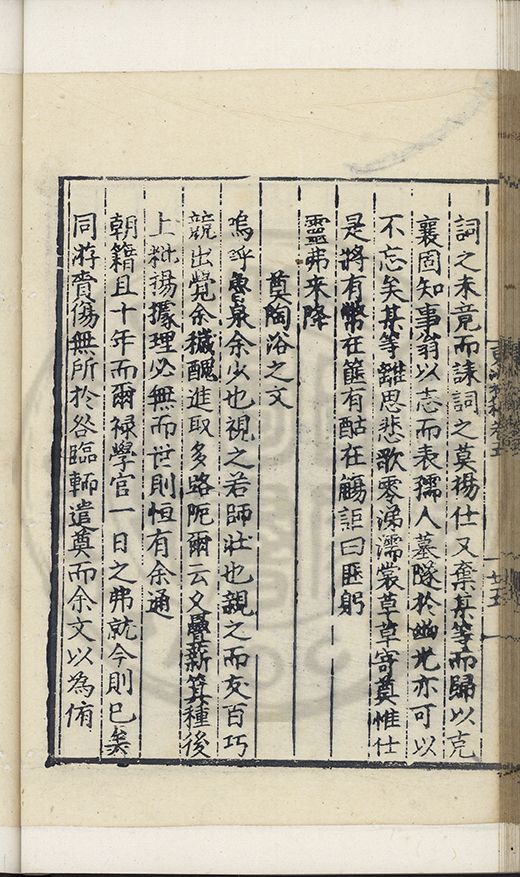 詞之未竟而誄詞之莫揚仕又棄某等而歸以克
襄固知事翁以志而表孺人墓隧於幽光亦可以
不忘矣某等離思悲歌零涕濡裳草草寄奠惟仕
是將有幣在篚有酤在觴詎曰匪躬
靈弗来降
奠陶浴之文
嗚呼魯泉余少也視之若師壯也親之而友百巧
競出覺余穢醜進取多路阨爾云夂疊薪箕種後
上粃揚據理必無而世則恒有余通
朝籍且十年而爾禄學官一日之弗就今則已矣
同游賷傷無所於咎臨輀遣奠而余文以為侑